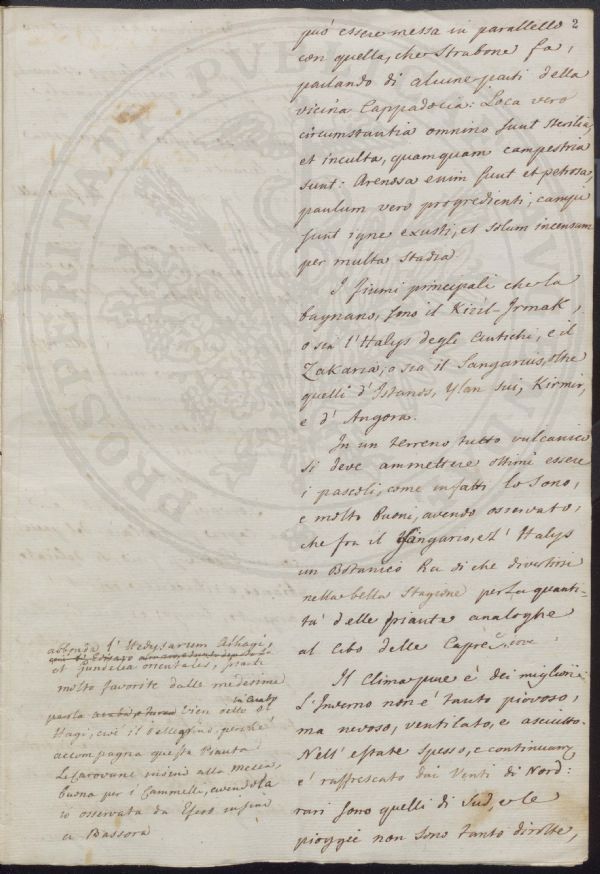 2
può essere messa in parallello
con quella, che Strabone fa,
parlando di alcune parti della
vicina Cappadocia: Loca vero
circumstantia omnino sunt sterilia,
et inculta, quamquam campestria
sunt: Arenosa enim sunt et petrosa,
paulum vero progredienti, campi
sunt igne exusti, et solum incensum
per multa stadia.
I fiumi principali che la
bagnano, sono il Kizil-Irmak,
o sia l'Halys degli Antichi, e il
Zakaria, o sia il Sangarius, oltre
quelli d'Istanos, Ylan sui, Kirmir,
e d'Angora.
In un terreno tutto vulcanico
si deve ammettere ottimi essere
i pascoli, come infatti lo sono,
e molto buoni, avendo osservato,
che fra il Sangario, e l'Halys
un Botanico ha di che divertirsi
nella bella stagione per la quanti-
tà delle piante analoghe
al cibo delle Capre, ove
Il Clima pure è dei migliori:
L'Inverno non è tanto piovoso,
ma nevoso, ventilato, e asciutto.
Nell'estate spesso, e continuam.
è raffrescato dai Venti di Nord:
rari sono quelli di Sud, e le
pioggie non sono tanto dirotte,
abbonda l'Hedysarum Alhagi,
et Gundelia orientales, piante
molto favorite dalle medesime
in Arabo
parla vien detto Al
Hagi, cioè il Pellegrino, perchè
accompagna questa Pianta
le Carovane insino alla Mecca,
buona per i Cammelli, avendola
io osservata da insino
a Bassora
PROSPERITATE PVBLICA